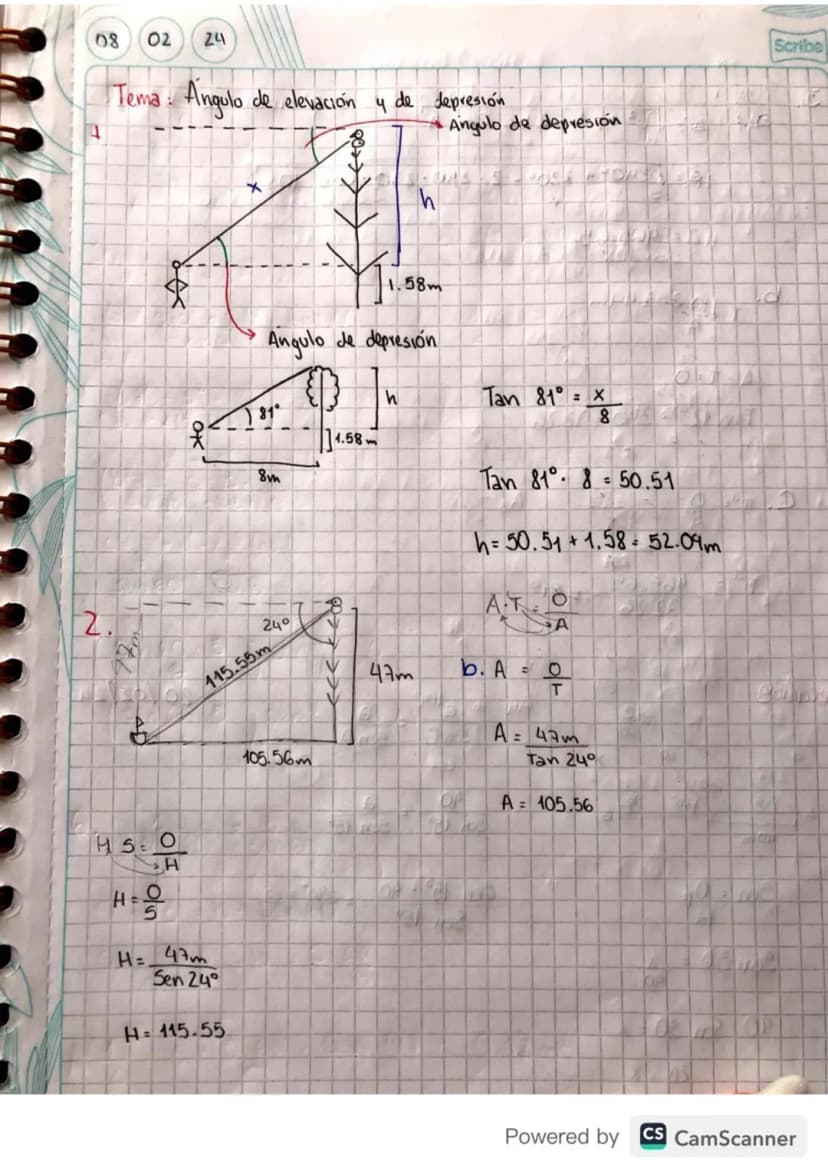 08 02 24
Scribe
Tema: Ángulo de elevación y de depresión
1
Ángulo de depresión
x
h
1.58m
Ángulo de depresión
81°
h
1.58m
8m
Tan 81° = x/8
Tan 81° · 8 = 50.51
h = 50.51 + 1.58 = 52.09m
2.
24°
115.55m
47m
105.56m
A·T = O/A
b. A = O/T
A = 47m/Tan 24°
A = 105.56
H S = O/H
H = O/S
H = 47m/Sen 24°
H = 115.55
Powered by CS CamScanner